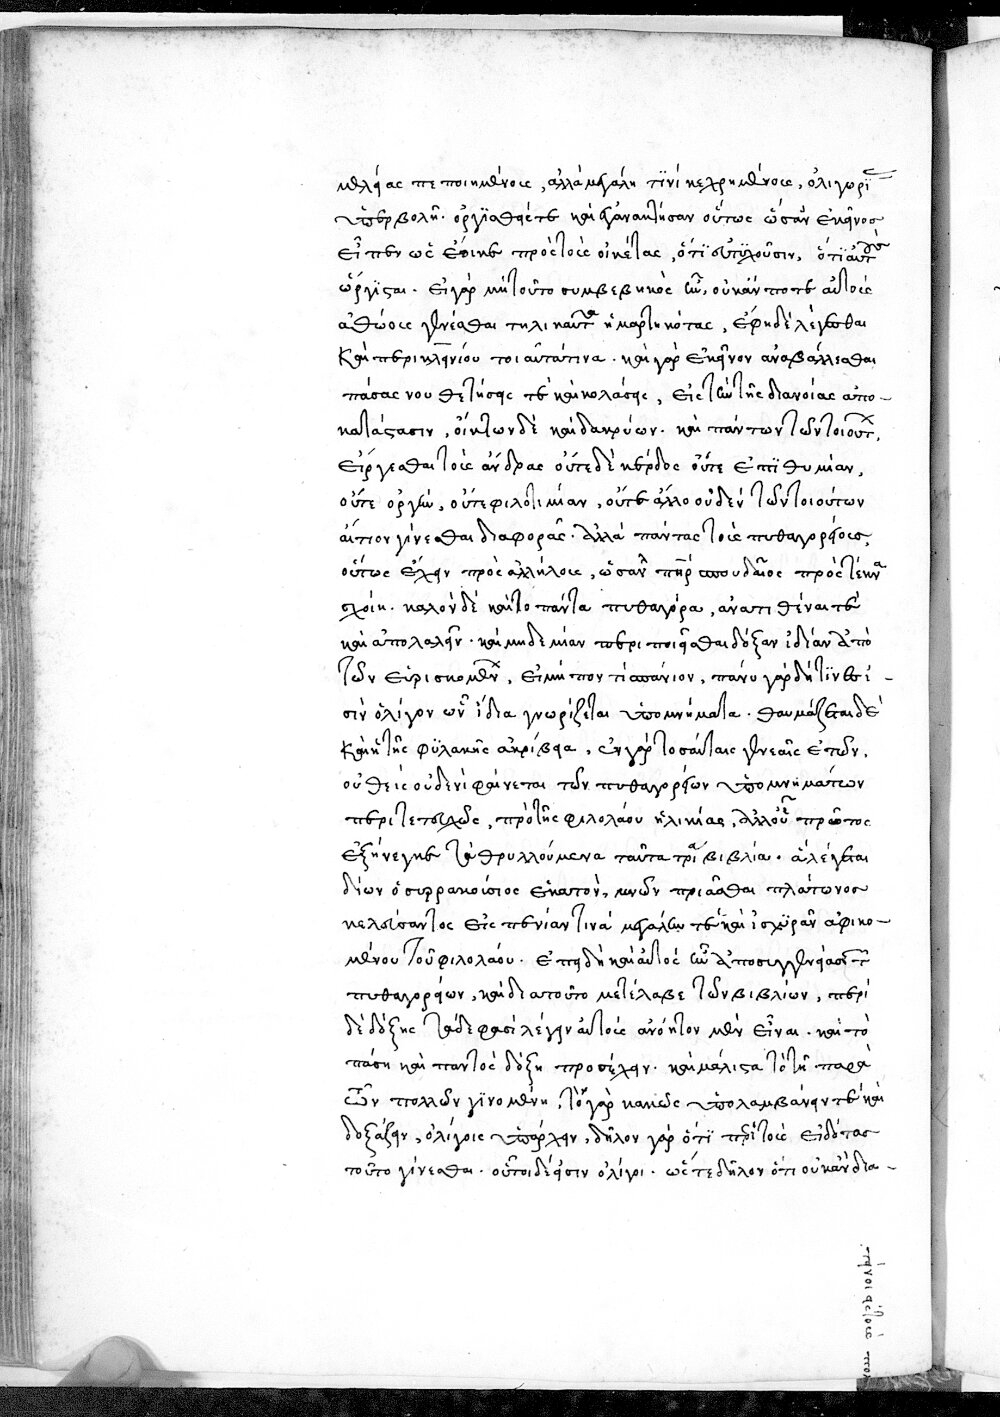 μελείας πεποιημένους, ἀλλὰ μεγάλη τϊνὶ κεχρημένους, ὀλιγωρί
ὑπερβολῆ. ὀργϊσθῆναί τε καὶ ἀγανακτῆσαν οὕτως ὥσἂν ἐκεῖνος
εἶπεν ὡς ἔοικε πρὸς τοὺς οἰκέτας, ὅτϊ εὐτϋχοῦσιν, ὅτϊ αὐτοῖς
ὤργϊσται. εἰγὰρ μὴ τοῦτο συμβεβηκὸς ὦν, οὐκἄν ποτε αὐτοὺς
ἀθώους γενέσθαι τηλικαῦτα ἡμαρτηκότας, ἔφη δὲ λέγεσθαι
καὶ περὶ κλεινίου τοιαῦτά τινα. καὶ γὰρ ἐκεῖνον ἀναβάλλεσθαι
πάσας νουθετήσεις τὲ καὶ κολάσεις, εἰς τὴν τῆς διανοίας ἀπο-
κατάστασιν, οἴκτων δὲ καὶ δακρύων. καὶ πάντων τῶν τοιούτ,
εἴργεσθαι τοὺς ἄνδρας οὔτε δὲ κέρδος οὔτε ἐπϊθυμίαν,
οὔτε ὀργὴν, οὔτε φιλοτιμίαν, οὔτε ἄλλο οὐδὲν τῶν τοιούτων
αἴτιον γίνεσθαι διαφορᾶς. ἀλλὰ πάντας τοὺς πυθαγορείους,
οὕτως ἔχειν πρὸς ἀλλήλους, ὡσὰν πὴρ σπουδαῖος πρὸς τέκνα
σχοίη. καλὸν δὲ καὶ τὸ πάντα πυθαγόρα, ἀνατιθέναι τὲ
καὶ ἀπολαλεῖν. καὶ μηδεμίαν περιποιεῖσθαι δόξαν ἰδίαν ἀπὸ
τῶν εὑρισκομέν, εἰ μή που τὶ σπάνιον, πάνυ γὰρ δή τϊνές εἰ-
σὶν ὀλίγον ὧν ἴδια γνωρίζεται ὑπομνήματα. θαυμάζεται δὲ
καὶ ἡ τῆς φϋλακῆς ἀκρίβεια, ἐν γὰρ τοσαύταις γενεαῖς ἐτῶν,
οὐθεὶς οὐδενὶ φαίνεται τῶν πυθαγορείων ὑπομνημάτων
περιτετευχὼς, πρὸ τῆς φιλολάου ἡλικίας, ἀλλ' οὗτος πρῶτος
ἐξήνεγκε τὰ θρυλλούμενα ταῦτα τρία βιβλία. ἃ λέγεται
δίων ὁ συρρακούσιος ἑκατὸν, μνῶν πριᾶσθαι πλάτωνος
κελεύσαντος εἰς πενίαν τινὰ μεγάλην τὲ καὶ ἰσχϋρὰν ἀφικο-
μένου τοῦ φιλολάου. ἐπειδὴ καὶ αὐτὸς ἦν ἀπὸ συγγενείας τ
πυθαγορείων, καὶ διατοῦτο μετέλαβε τῶν βιβλίων, περὶ
δὲ δόξης τάδε φασὶ λέγειν αὐτοὺς ἀνόητον μὲν εἶναι. καὶ τὸ
πάση καὶ παντὸς δόξη προσέχειν. καὶ μάλιστα τὸ τῆ παρὰ
τῶν πολλῶν γϊνομένη, τὸ γὰρ καλῶς ὑπολαμβάνειν τὲ καὶ
δοξάζειν, ὀλίγοις ὑπάρχειν, δῆλον γὰρ ὅτϊ περὶ τοὺς εἰδότας
τοῦτο γίνεσθαι. οὗτοι δέ εἰσιν ὀλίγοι. ὥστε δῆλον ὅτι οὐκἂν δια-